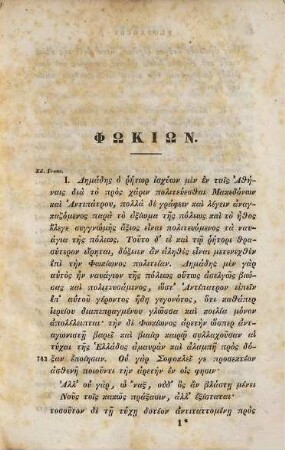 ΦΩΚΙΩΝ.
Ed. Franc.
I. Δημάδης ὁ ῥήτωρ ἰσχύων μὲν ἐν ταῖς Ἀθή-
ναις διὰ τὸ πρὸς χάριν πολιτεύεσθαι Μακεδόνων
καὶ Ἀντιπάτρου, πολλὰ δὲ γράφειν καὶ λέγειν ἀναγ-
καζόμενος παρὰ τὸ ἀξίωμα τῆς πόλεως καὶ τὸ ἦθος
ἔλεγε συγγνώμης ἄξιος εἶναι πολιτευόμενος τὰ ναυ-
άγια τῆς πόλεως. Τοῦτο δ' εἰ καὶ τῷ ῥήτορι θρα-
σύτερον εἴρηται, δόξειεν ἂν ἀληθὲς εἶναι μετενεχθὲν
ἐπὶ τὴν Φωκίωνος πολιτείαν. Δημάδης μὲν γὰρ
αὐτὸς ἦν ναυάγιον τῆς πόλεως οὕτως ἀσελγῶς βιώσας
καὶ πολιτευσάμενος, ὥστ' Ἀντίπατρον εἰπεῖν
ἐπ' αὐτοῦ γέροντος ἤδη γεγονότος, ὅτι καθάπερ
ἱερείου διαπεπραγμένου γλῶσσα καὶ κοιλία μόνον
ἀπολέλειπται· τὴν δὲ Φωκίωνος ἀρετὴν ὥσπερ ἀντ-
αγωνιστῇ βαρεῖ καὶ βιαίῳ καιρῷ συλλαχοῦσαν αἱ
τύχαι τῆς Ἑλλάδος ἀμαυρὰν καὶ ἀλαμπῆ πρὸς δό-
742 ξαν ἐποίησαν. Οὐ γὰρ Σοφοκλεῖ γε προσεκτέον
ἀσθενῆ ποιοῦντι τὴν ἀρετὴν ἐν οἷς φησιν·
Ἀλλ' οὐ γὰρ, ὦ 'ναξ, οὐδ' ὃς ἂν βλάστῃ μένει
Νοῦς τοῖς κακῶς πράξασιν, ἀλλ' ἐξίσταται·
τοσοῦτον δὲ τῇ τύχῃ δοτέον ἀντιταττομένῃ πρὸς
1*